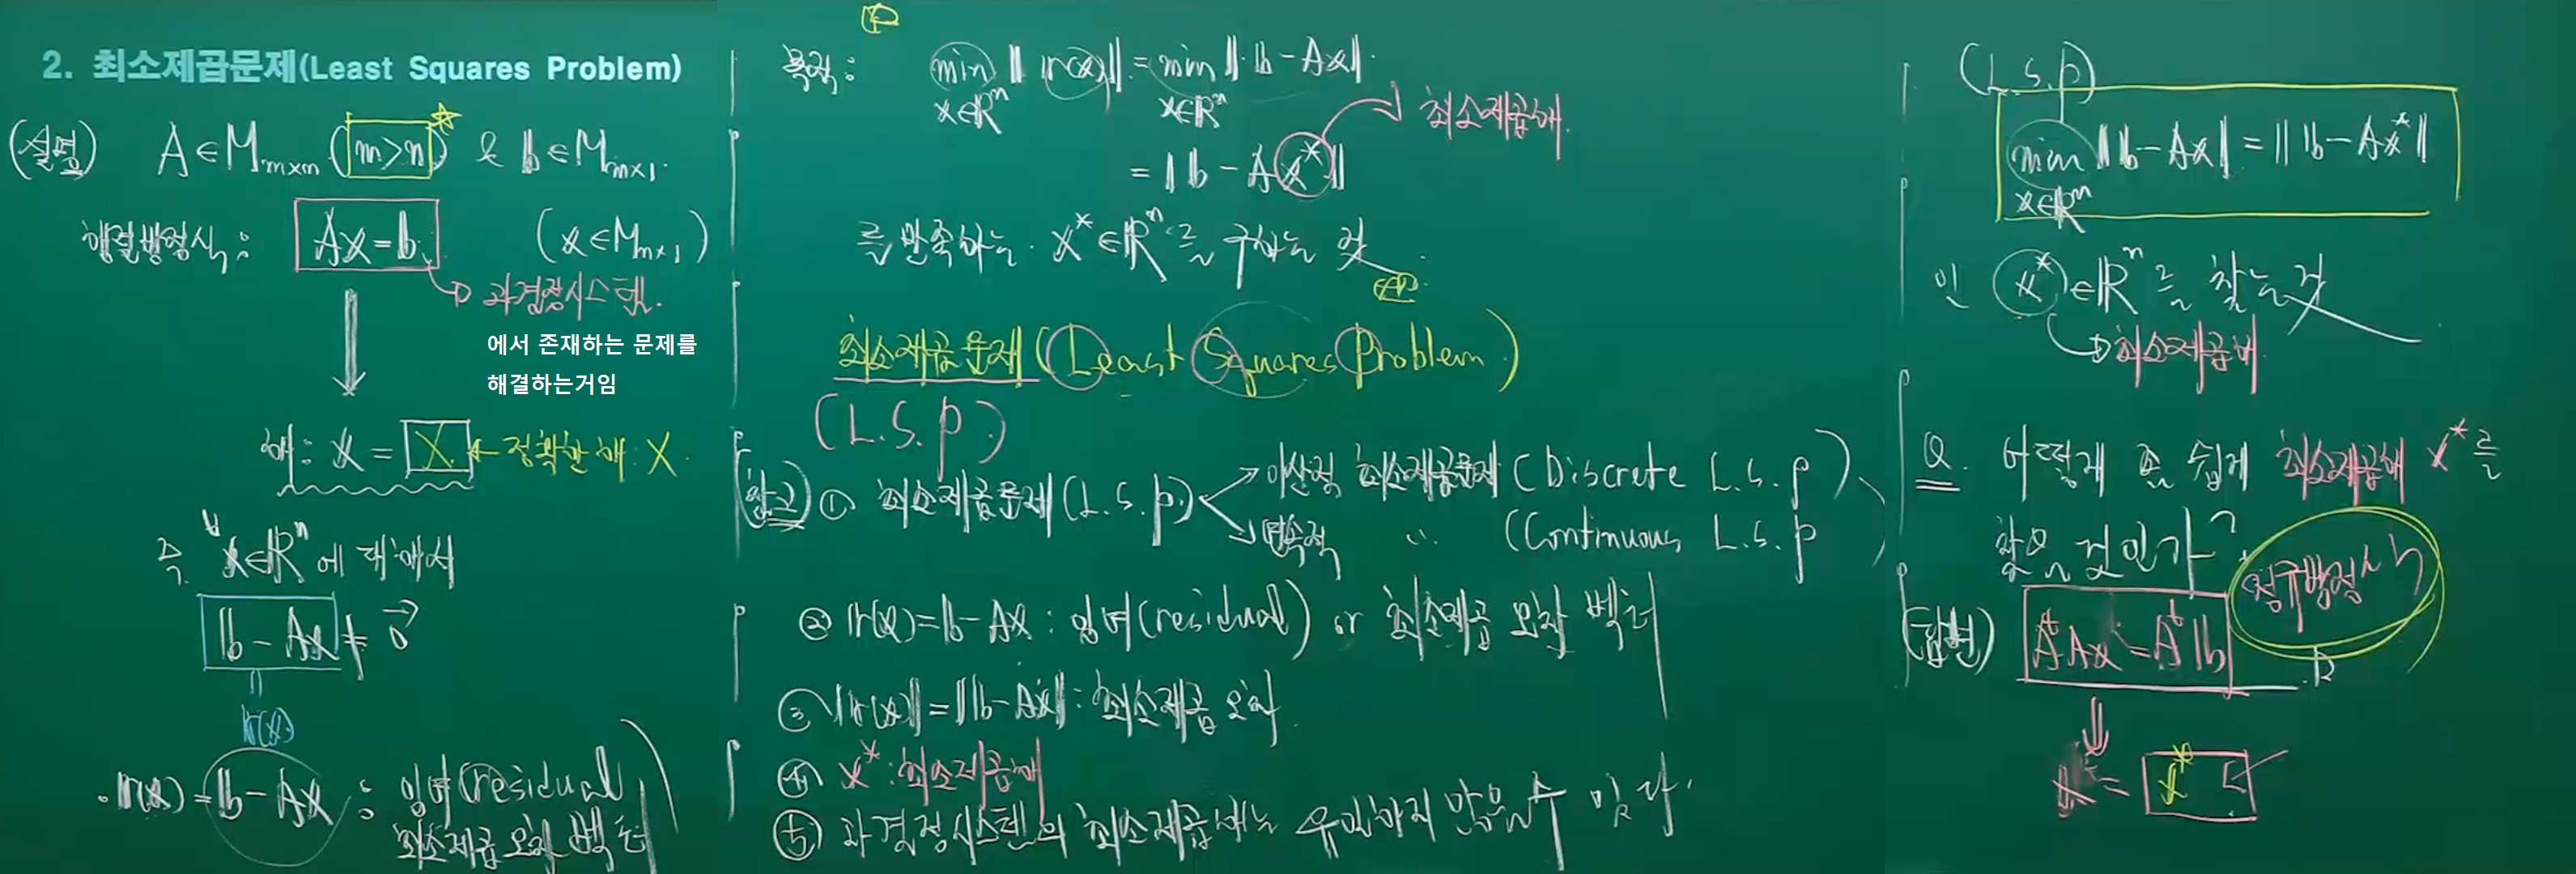 2. 최소제곱문제(Least Squares Problem)
(설명) A∈M_{m×n} (m>n) & b∈M_{m×1}.
행렬방정식: Ax=b (x∈M_{n×1})
→ 과결정시스템.
에서 존재하는 문제를
해결하는거임
해: x = X ← 정확한 해: X.
즉, ∀x∈ℝⁿ에 대해서
b-Ax ≠ 0⃗
"
r(x)
r(x) = b-Ax : 잉여(residual)
최소제곱 오차 벡터
목적: min ‖r(x)‖ = min ‖b-Ax‖.
x∈ℝⁿ x∈ℝⁿ
= ‖b-Ax*‖ → 최소제곱해.
를 만족하는 x*∈ℝⁿ를 구하는 것.
최소제곱문제 (Least Squares Problem)
(L.S.P.)
(참고) ① 최소제곱문제(L.S.P.) 이산적 최소제곱문제 (Discrete L.S.P)
연속적 " (Continuous L.S.P)
② r(x)=b-Ax : 잉여(residual) or 최소제곱 오차 벡터
③ ‖r(x)‖=‖b-Ax‖: 최소제곱 오차.
④ x*: 최소제곱해
⑤ 과결정시스템의 최소제곱해는 유일하지 않을 수 있다.
(L.S.P)
min ‖b-Ax‖=‖b-Ax*‖
x∈ℝⁿ
인 x*∈ℝⁿ를 찾는 것
→ 최소제곱해
Q. 어떻게 좀 쉽게 최소제곱해 x*를
찾을 것인가?
정규방정식
(답변) AᵗAx=Aᵗb
⇓
x = x*